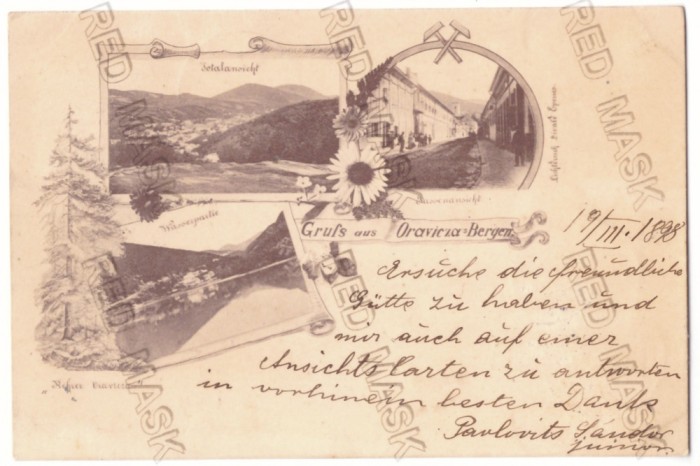 Totalansicht
Gassenansicht
Wasserpartie
Gruſs aus Oravicza-Bergen.
19/III. 1898
Ersuche die freundliche
Gütte zu haben und
mir auch auf einer
Ansichtskarten zu antworten
in vorhinem besten Dank
Pavlovits Sándor
junior
RED MASK
RED MASK
RED MASK
RED MASK
RED MASK
RED MASK
RED MASK